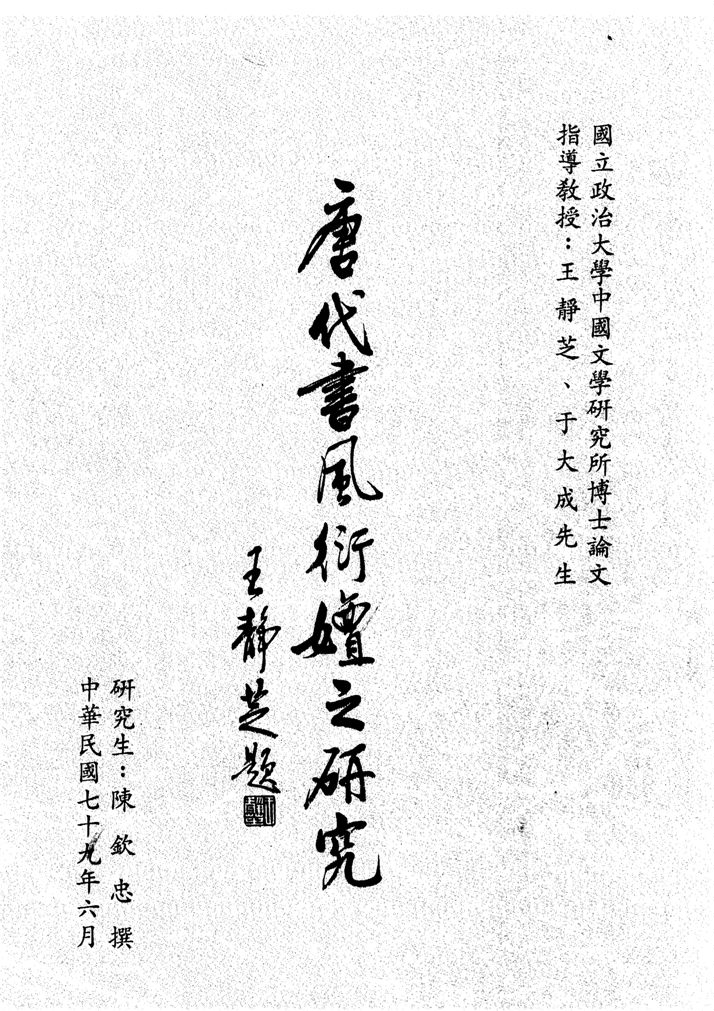 國立政治大學中國文學研究所博士論文
指導教授：王靜芝、于大成先生
唐代書風衍嬗之研究
王靜芝題
研究生：陳欽忠撰
中華民國七十九年六月